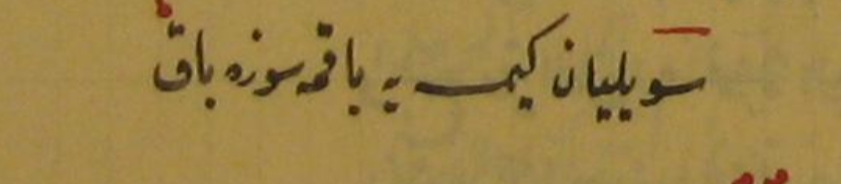 سویلیان کیمسه یه باقمه سوزه باق